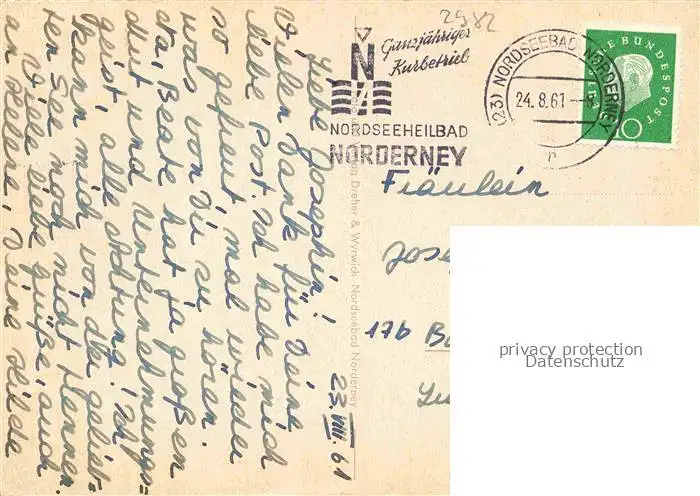 2982
Ganzjähriger
Kurbetrieb
N
NORDSEEHEILBAD
NORDERNEY
(23) NORDSEEBAD NORDERNEY
24.8.61
r
DEUTSCHE BUNDESPOST
10
23.VIII.61
Liebe Josephin!
Vielen Dank für Deine
liebe Post. Ich habe mich
so gefreut mal wieder
was von Dir zu hören.
Beate hat ja großen
Mut und Unternehmungs=
geist, alle Achtung! Ich
kann mich von der gelieb=
ten See noch nicht trennen.
Viele liebe Grüße, auch
an Helene, Deine Hilde
Dreher & Wyrwich Nordseebad Norderney
Fräulein
Jose
17b B
privacy protection
Datenschutz